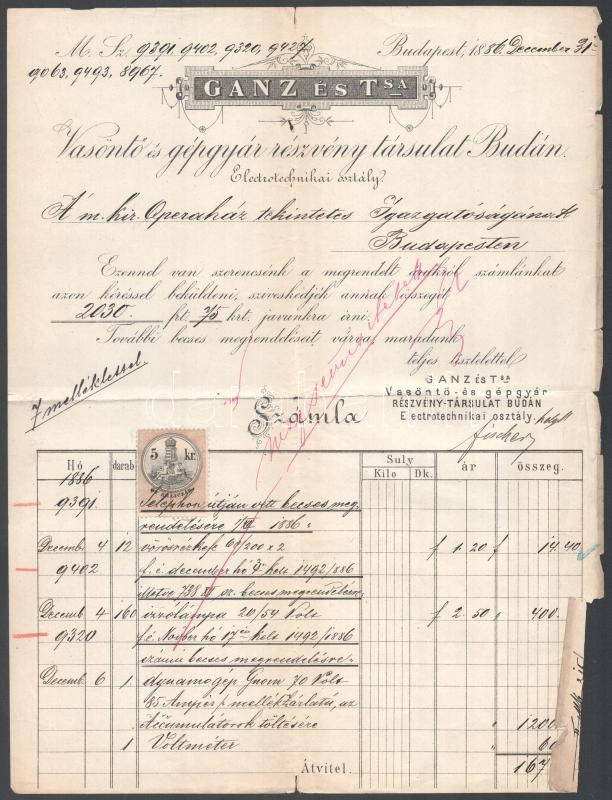 M. Sz. 9391, 9402, 9320, 9427
9063, 9493, 8967.
Budapest, 1886. December 31
GANZ ÉS TSA
Vasöntő és gépgyár részvény társulat Budán.
Electrotechnikai osztály.
A m. kir. Operaház tekintetes Igazgatóságának
Budapesten
Ezennel van szerencsénk a megrendelt árukról számlánkat
azon kéréssel beküldeni, sziveskedjék annak összegét
2030. frt. 75 krt. javunkra irni.
További becses megrendeléseit várva, maradunk
teljes tisztelettel
7 melléklettel.
GANZ ÉS TSA
Vasöntő- és gépgyár
RÉSZVÉNY-TÁRSULAT BUDÁN
Electrotechnikai osztály.
Fischer
Számla
Hó darab Suly ár összeg.
Kilo Dk.
1886
5 kr.
9391. Telephon útján vett becses meg-
rendelésére 1886
Decemb 4 12 vörösrézkefe 60/200 x 2 f 1.20 f 14.40
9402 f. é. december hó kelt 1492/886
sz. becses megrendelésre
Decemb. 4 160 izzólámpa 20/54 Volt f 2.50 400.
9320 f. é. Novber hó 17én kelt 1492/1886
számú becses megrendelésre
Decemb 6 1. dynamogép 70 Volt
85 Ampér mellékzárlatú, az
Accumulátorok töltésére 1200
1 Voltméter 60
Átvitel. 167